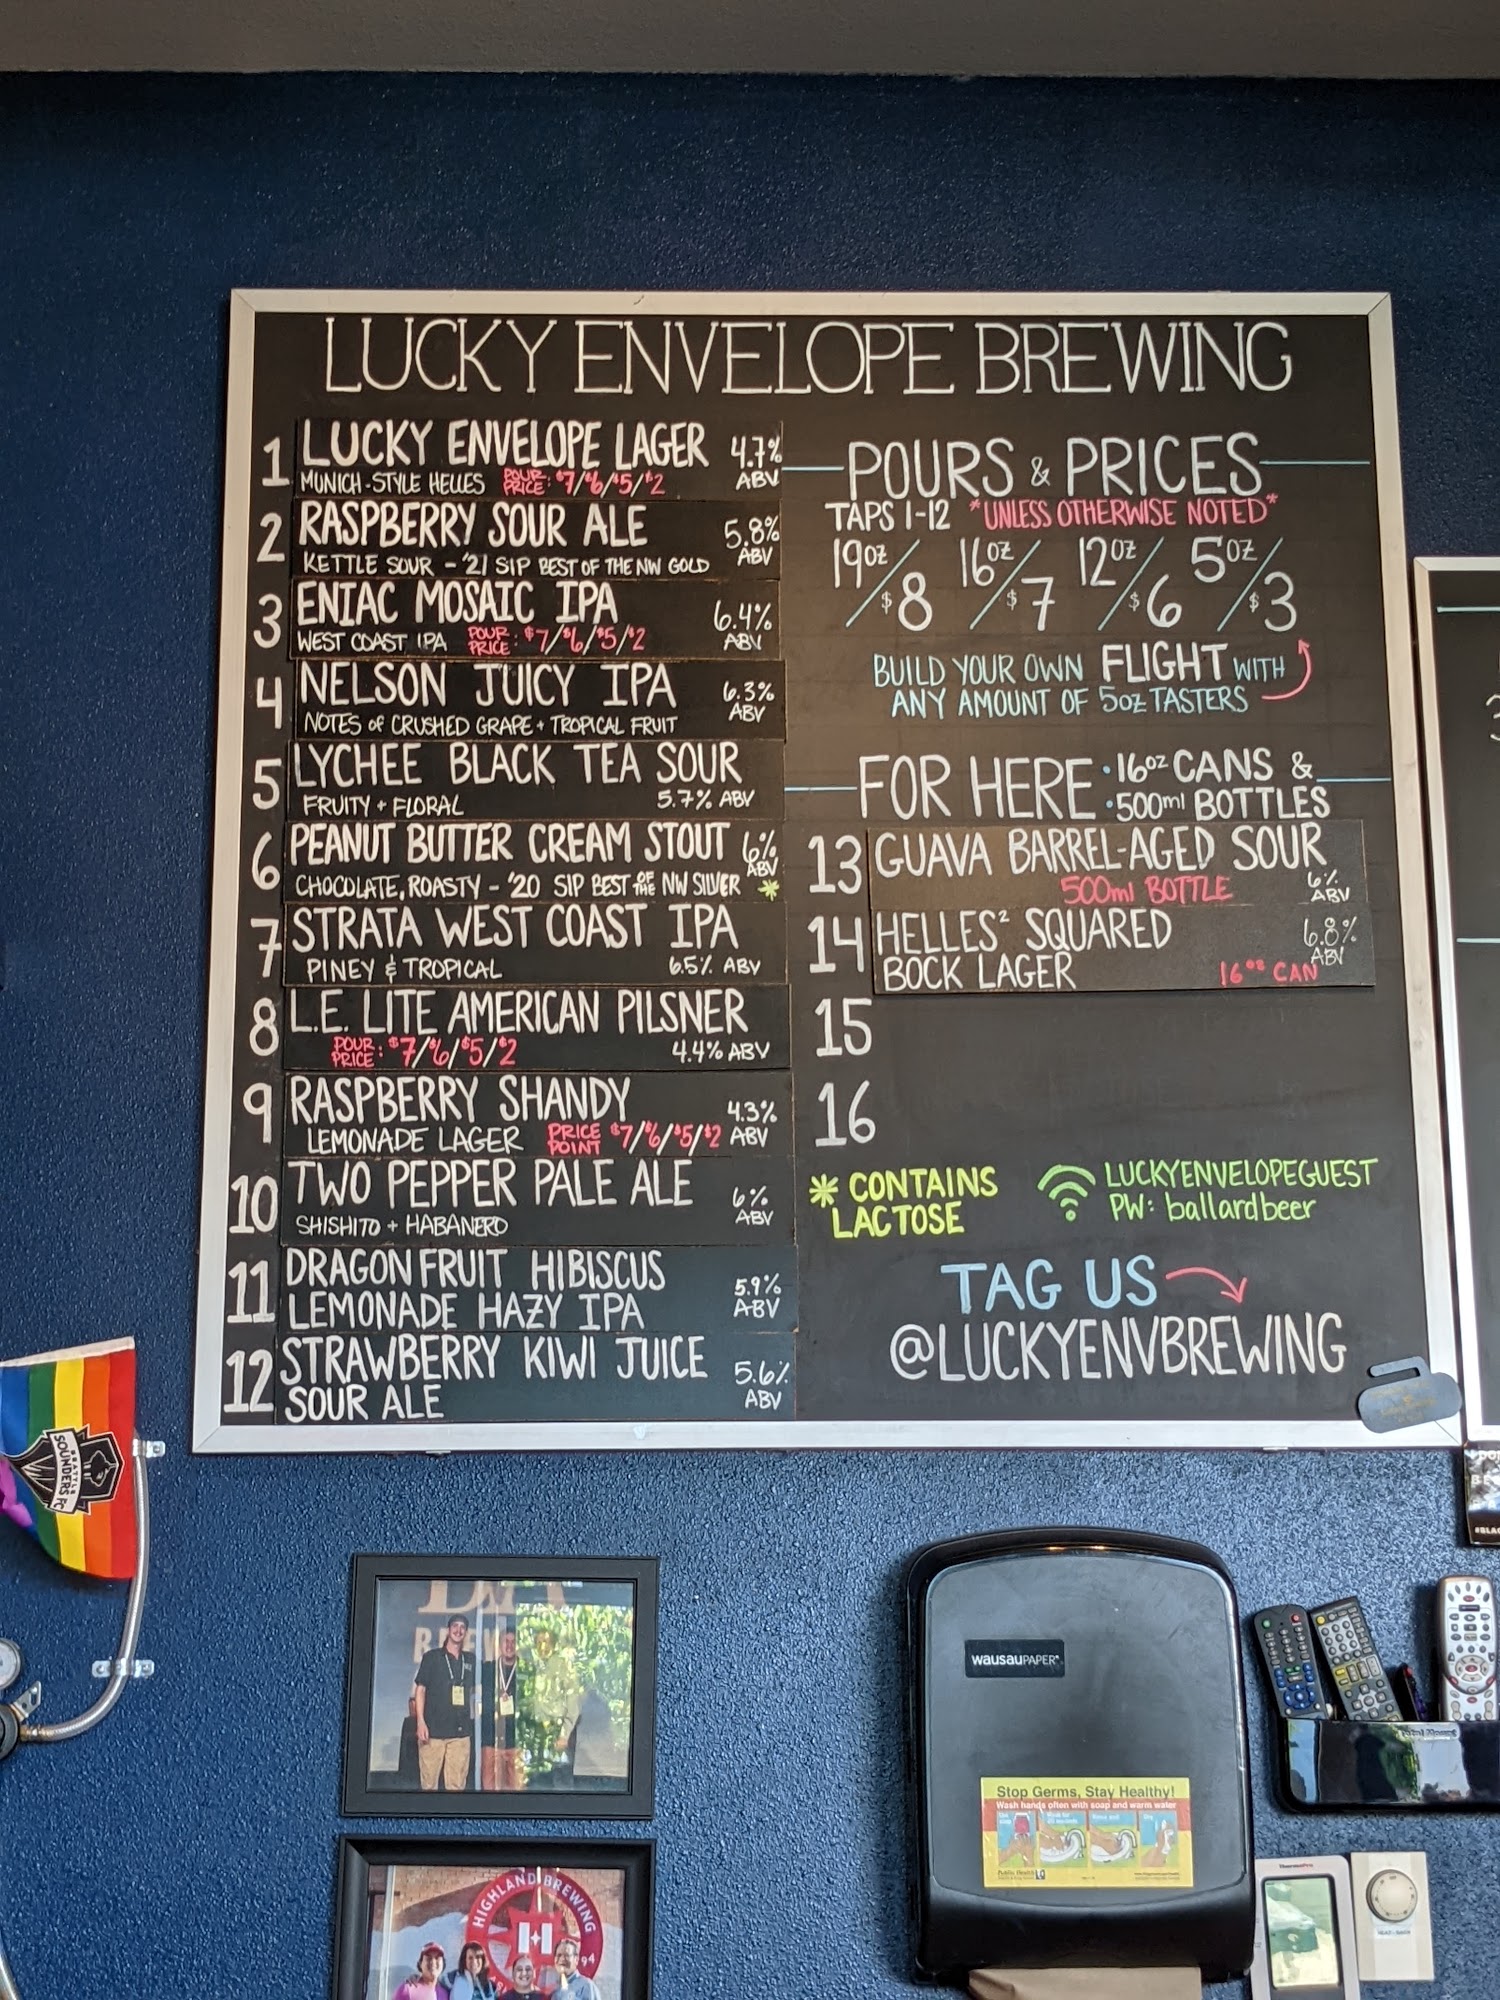 LUCKY ENVELOPE BREWING
1 LUCKY ENVELOPE LAGER 4.7% ABV
MUNICH-STYLE HELLES POUR PRICE: $7/$6/$5/$2
2 RASPBERRY SOUR ALE 5.8% ABV
KETTLE SOUR - '21 SIP BEST OF THE NW GOLD
3 ENIAC MOSAIC IPA 6.4% ABV
WEST COAST IPA POUR PRICE: $7/$6/$5/$2
4 NELSON JUICY IPA 6.3% ABV
NOTES of CRUSHED GRAPE + TROPICAL FRUIT
5 LYCHEE BLACK TEA SOUR
FRUITY + FLORAL 5.7% ABV
6 PEANUT BUTTER CREAM STOUT 6% ABV
CHOCOLATE, ROASTY - '20 SIP BEST OF THE NW SILVER *
7 STRATA WEST COAST IPA
PINEY & TROPICAL 6.5% ABV
8 L.E. LITE AMERICAN PILSNER
POUR PRICE: $7/$6/$5/$2 4.4% ABV
9 RASPBERRY SHANDY 4.3% ABV
LEMONADE LAGER PRICE POINT $7/$6/$5/$2
10 TWO PEPPER PALE ALE 6% ABV
SHISHITO + HABANERO
11 DRAGONFRUIT HIBISCUS
LEMONADE HAZY IPA 5.9% ABV
12 STRAWBERRY KIWI JUICE
SOUR ALE 5.6% ABV
POURS & PRICES
TAPS 1-12 *UNLESS OTHERWISE NOTED*
19oz/$8 16oz/$7 12oz/$6 5oz/$3
BUILD YOUR OWN FLIGHT WITH
ANY AMOUNT OF 5oz TASTERS
FOR HERE • 16oz CANS &
• 500ml BOTTLES
13 GUAVA BARREL-AGED SOUR
500ml BOTTLE 6% ABV
14 HELLES² SQUARED 6.8% ABV
BOCK LAGER 16oz CAN
15
16
* CONTAINS
LACTOSE
LUCKYENVELOPEGUEST
PW: ballardbeer
TAG US
@LUCKYENVBREWING
SEATTLE
SOUNDERS FC
HIGHLAND BREWING
wausauPAPER
Stop Germs, Stay Healthy!
Wash hands often with soap and warm water
Public Health